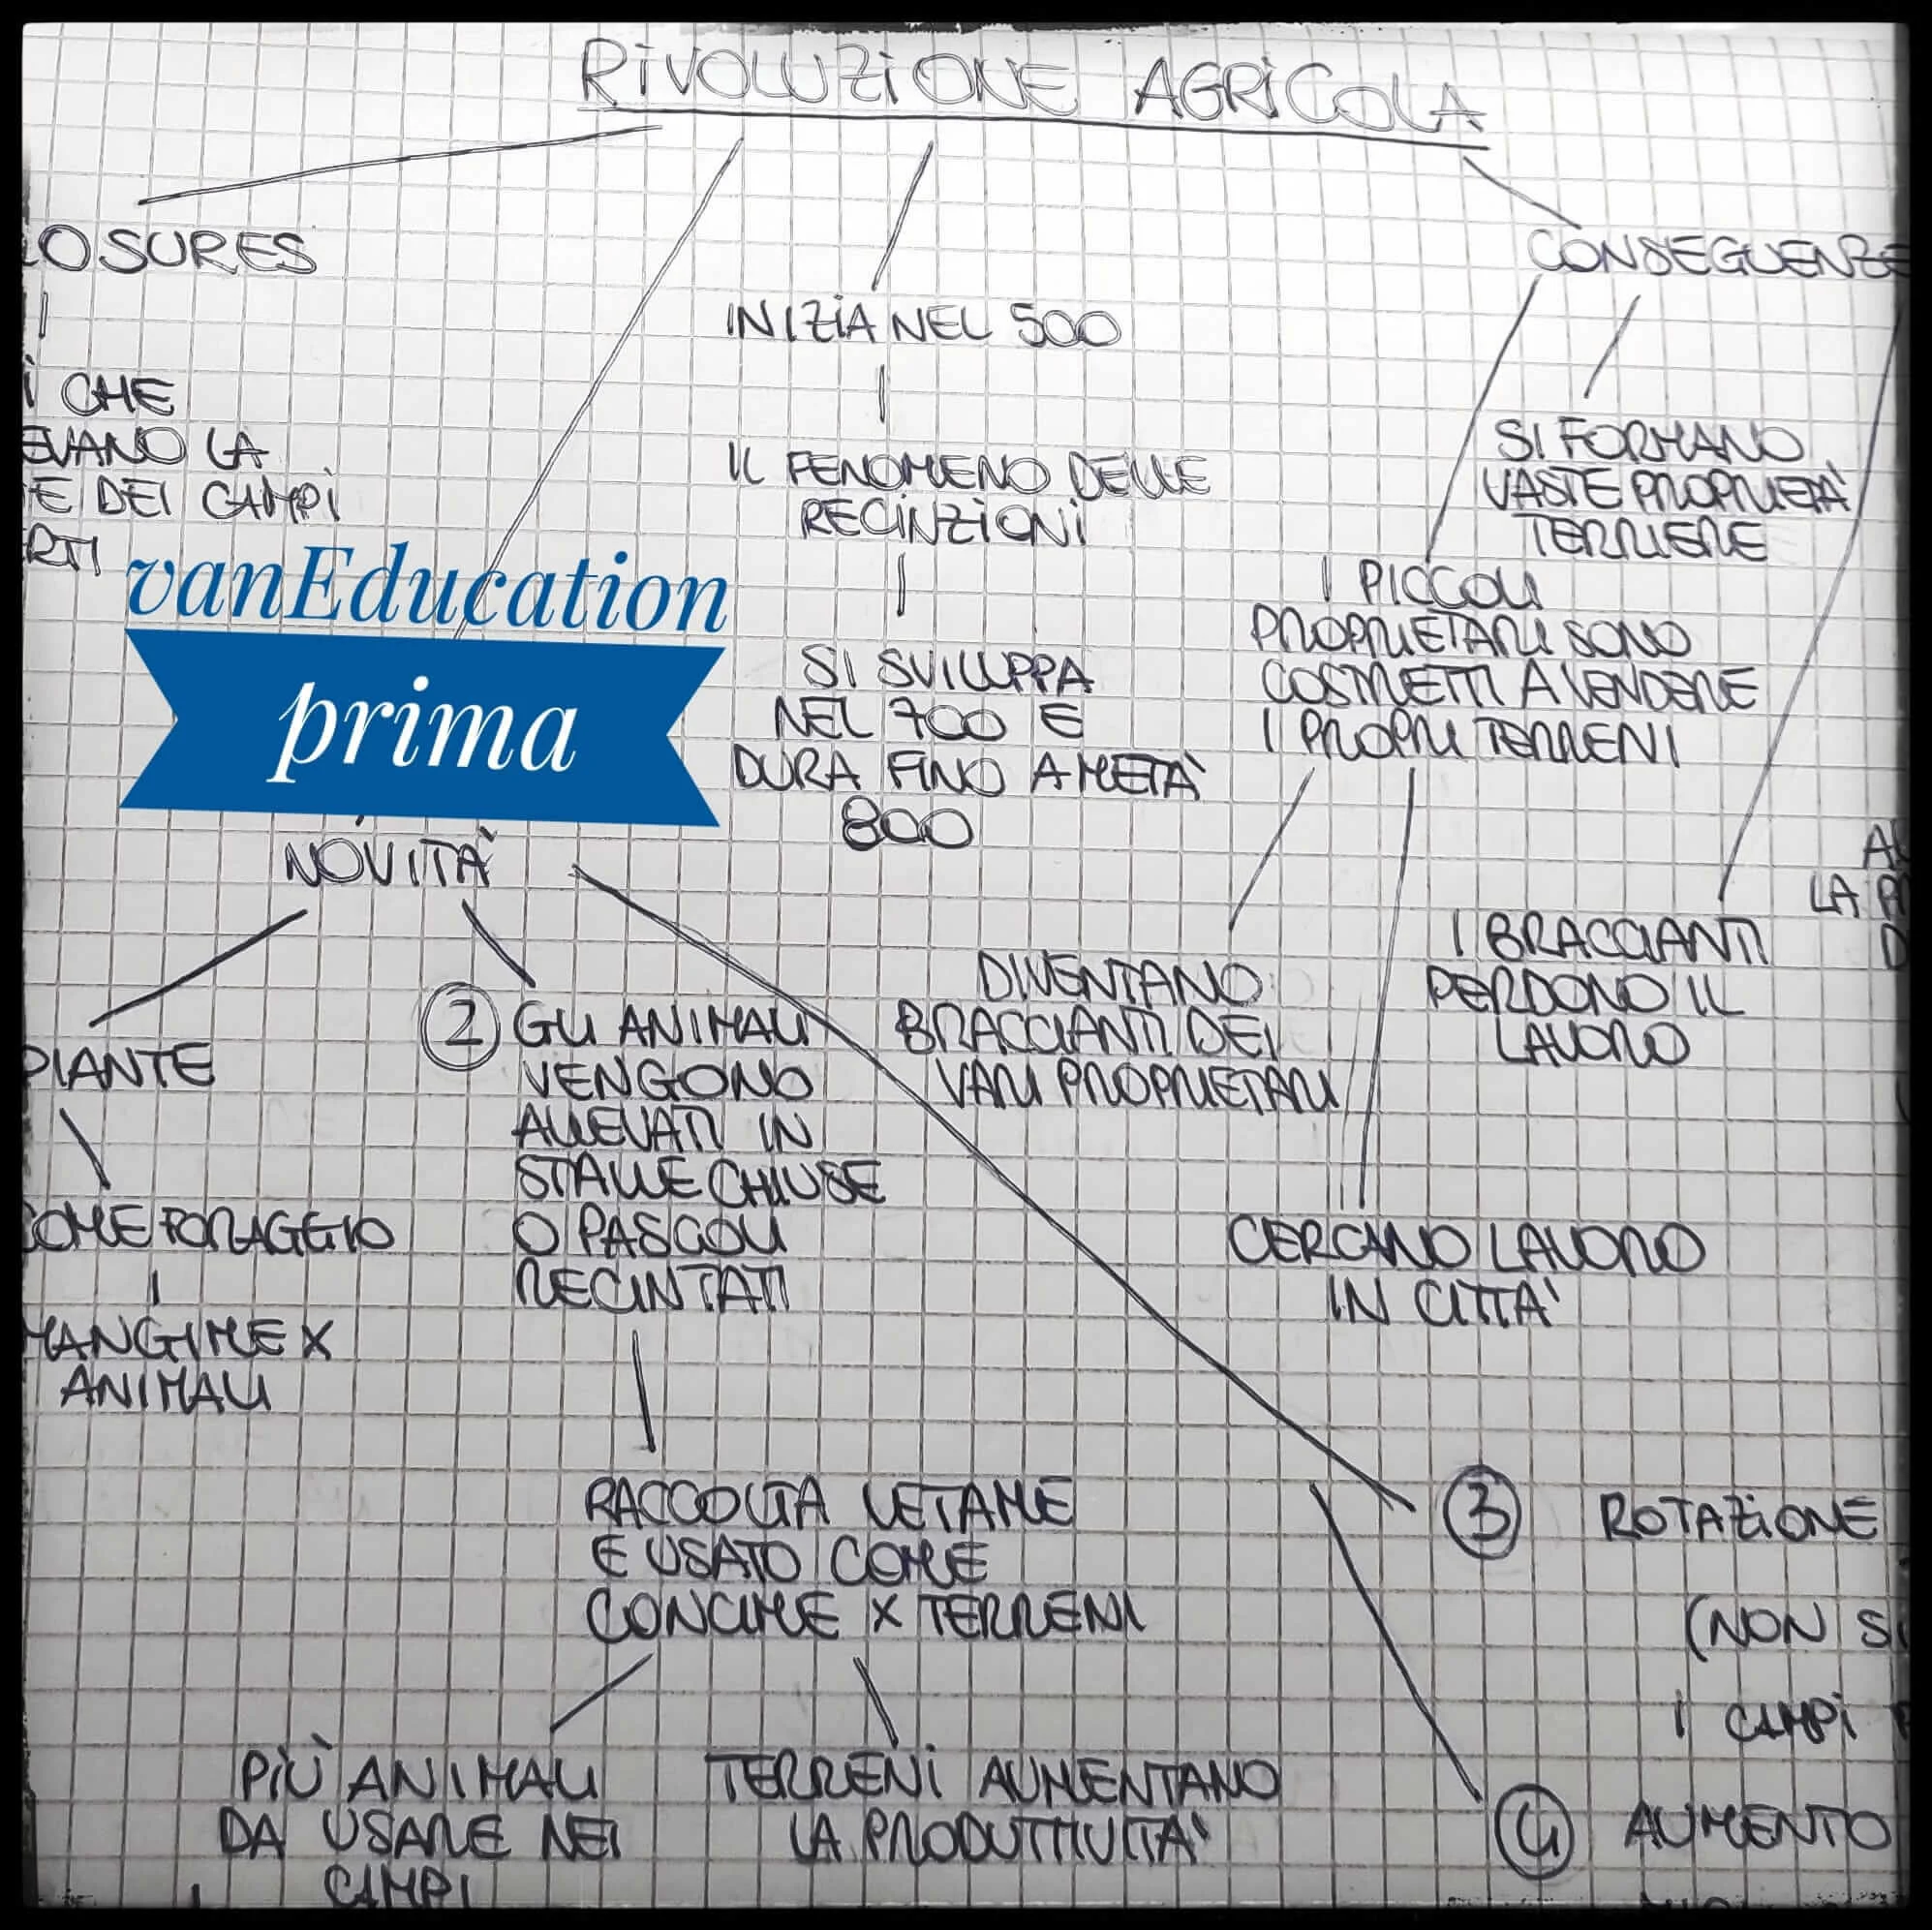 RIVOLUZIONE AGRICOLA
OSURES
I CHE
EVANO LA
E DEI CAMPI
RTI
vanEducation
prima
INIZIA NEL 500
IL FENOMENO DELLE
RECINZIONI
SI SVILUPPA
NEL 700 E
DURA FINO A METÀ
800
CONSEGUENZE
SI FORMANO
VASTE PROPRIETÀ
TERRIERE
I PICCOLI
PROPRIETARI SONO
COSTRETTI A VENDERE
I PROPRI TERRENI
DIVENTANO
BRACCIANTI DEI
VARI PROPRIETARI
CERCANO LAVORO
IN CITTÀ
I BRACCIANTI
PERDONO IL
LAVORO
LA
NOVITÀ
PIANTE
COME FORAGGIO
MANGIME X
ANIMALI
2 GLI ANIMALI
VENGONO
ALLEVATI IN
STALLE CHIUSE
O PASCOLI
RECINTATI
RACCOLTA LETAME
E USATO COME
CONCIME X TERRENI
PIÙ ANIMALI
DA USARE NEI
CAMPI
TERRENI AUMENTANO
LA PRODUTTIVITÀ
3 ROTAZIONE
(NON SI
I CAMPI
4 AUMENTO